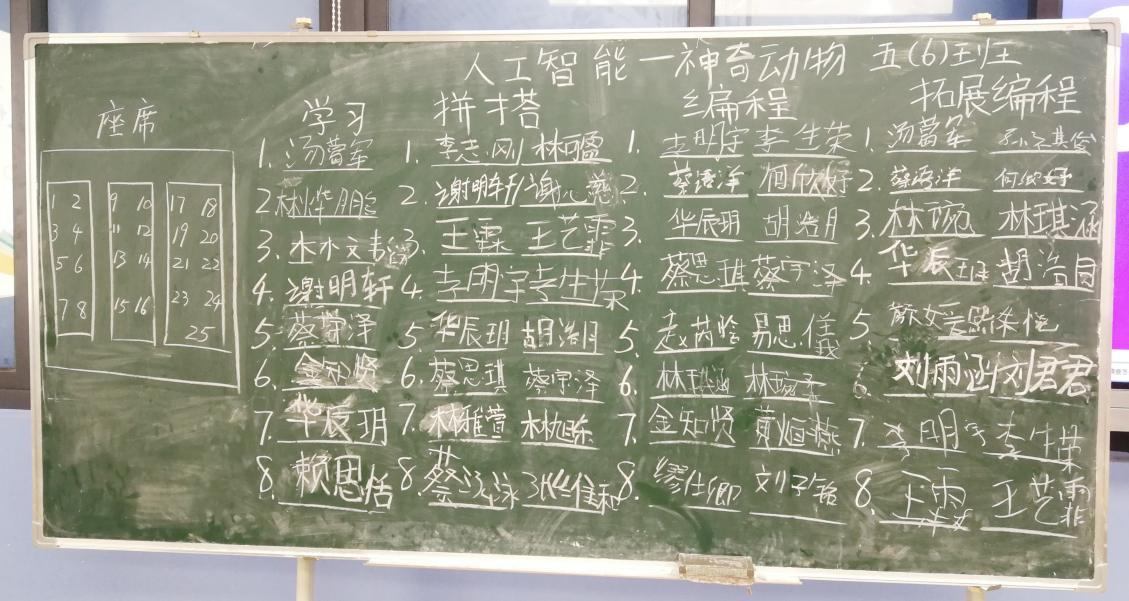 人工智能一神奇动物 五(6)班
座席 学习 拼搭 编程 拓展编程
1 2 9 10 17 18
3 4 11 12 19 20
5 6 13 14 21 22
7 8 15 16 23 24
25
1. 汤
2.
3. 林文
4. 谢明轩
5. 蔡宇泽
6. 金知贤
7. 华辰玥
8. 赖思恬
1. 李志刚 林可盈
2. 谢明轩 谢心慈
3. 王霖 王艺霏
4. 李明宇 李生荣
5. 华辰玥 胡浩月
6. 蔡思琪 蔡宇泽
7. 林雅萱 林旭东
8. 蔡泳泳
1. 李明宇 李生荣
2. 蔡语洋 何欣妤
3. 华辰玥 胡浩月
4. 蔡思琪 蔡宇泽
5. 赵芮晗 易思儀
6. 林琪涵 林琬
7. 金知贤
8. 缪仕卿 刘子铭
1. 汤
2. 蔡语洋 何欣妤
3. 林琬 林琪涵
4. 华辰玥 胡浩月
5.
6. 刘雨涵 刘君君
7. 李明宇 李生荣
8. 王霖 王艺霏